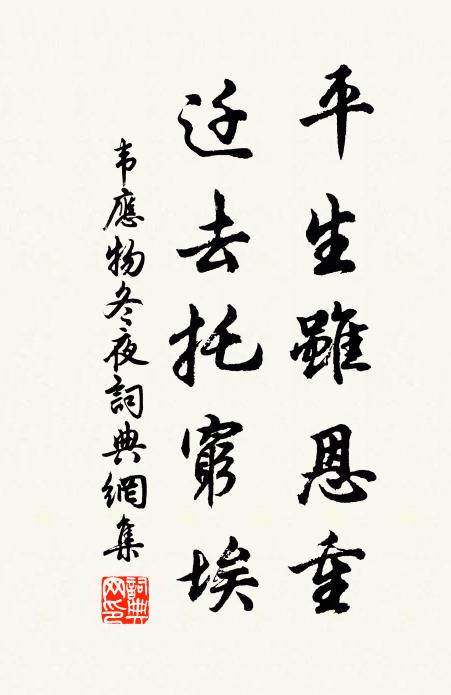 平生雖恩重
迁去托窮埃
韦應物冬夜詞典網集
詞典网印